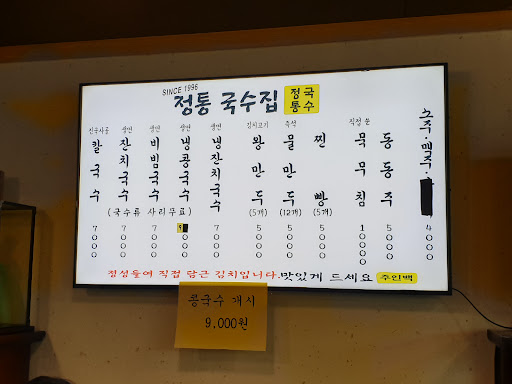 SINCE 1996
정통 국수집
정통국수
진국사용 칼국수 7000
생면 잔치국수 7000
생면 비빔국수 7000
생면 냉콩국수 9000
생면 냉잔치국수 7000
(국수류 사리무료)
김치고기 왕만두 (5개) 5000
즉석 물만두 (12개) 5000
찐빵 (5개) 5000
직접 쑨 묵무침 10000
동동주 5000
소주·맥주· 4000
정성들여 직접 담근 김치입니다. 맛있게 드세요 주인백
콩국수 개시
9,000원